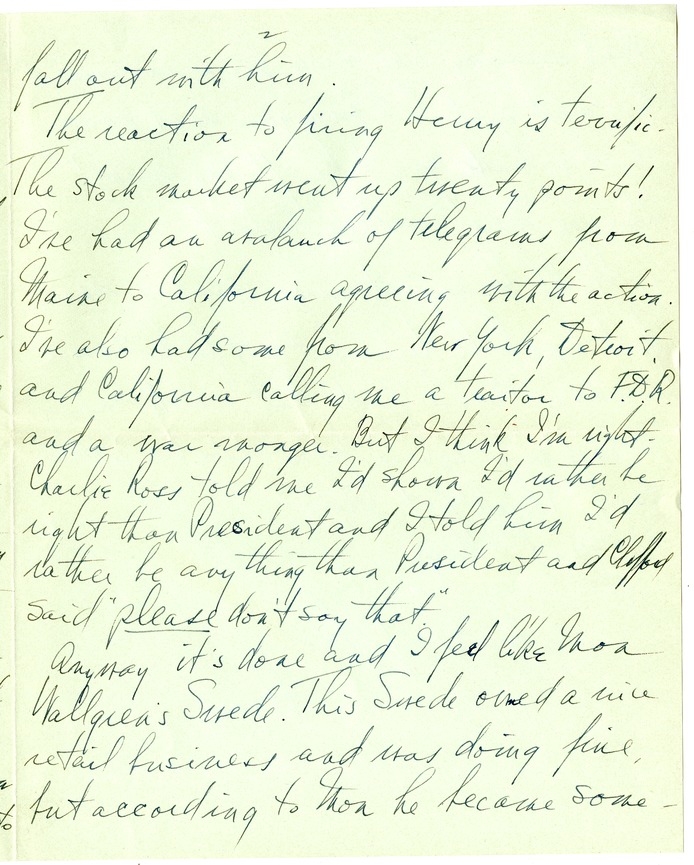 2
fall out with him.
The reaction to firing Henry is terrific.
The stock market went up twenty points!
I've had an avalanch of telegrams from
Maine to California agreeing with the action.
I've also had some from New York, Detroit
and California calling me a traitor to F.D.R.
and a war monger. But I think I'm right.
Charlie Ross told me I'd shown I'd rather be
right than President and I told him I'd
rather be anything than President and Clifford
said "please don't say that."
Anyway it's done and I feel like Mon
Wallgren's Swede. This Swede owned a nice
retail business and was doing fine,
but according to Mon he became some-
to